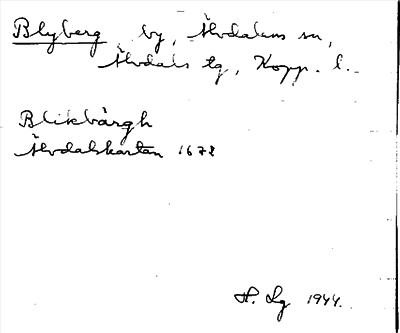 Blyberg by, Älvdalens sn,
Älvdals tg, Kopp. l.
Blikbärgh
Älvdalskartan 1678
H. Lg 1944.